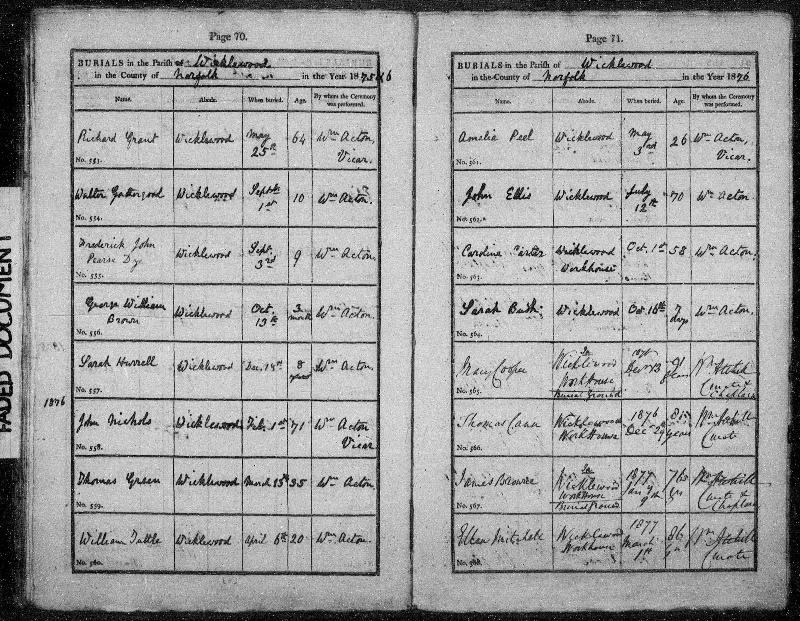 Page 70.
BURIALS in the Parish of Wicklewood
in the County of Norfolk in the Year 1875 & 6
Name. Abode. When buried. Age. By whom the Ceremony was performed.
Richard Grant Wicklewood May 25th 64 Wm Acton, Vicar.
No. 553.
Walter Gathergood Wicklewood Septbr 1st 10 Wm Acton.
No. 554.
Frederick John Pearse Dye Wicklewood Sept. 3rd 9 Wm Acton.
No. 555.
George William Brown Wicklewood Oct. 13th 3 months Wm Acton.
No. 556.
Sarah Hurrell Wicklewood Dec. 8 Wm Acton.
No. 557.
1876
John Nichols Wicklewood Feb. 1st 71 Wm Acton Vicar
No. 558.
Thomas Green Wicklewood March 15th 35 Wm Acton
No. 559.
William Tuttle Wicklewood April 6th 20 Wm Acton.
No. 560.
Page 71.
BURIALS in the Parish of Wicklewood
in the County of Norfolk in the Year 1876
Name. Abode. When buried. Age. By whom the Ceremony was performed.
Amelia Peel Wicklewood May 3rd 26 Wm Acton, Vicar.
No. 561.
John Ellis Wicklewood July 12th 70 Wm Acton
No. 562.
Caroline Carter Wicklewood Workhouse Oct. 1st 58 Wm Acton.
No. 563.
Sarah Bush Wicklewood Oct. 16th 7 days Wm Acton.
No. 564.
Mary Cooper In Wicklewood WorkHouse Burial Ground 1876 Decr 13 Wm Curate & Chaplain
No. 565.
Thomas Cann Wicklewood WorkHouse 1876 Dec years Wm Curate
No. 566.
James Browne In Wicklewood WorkHouse Burial Ground 1877 Jany 9th 76 yrs Wm Curate & Chaplain
No. 567.
Ellen Mitchell Wicklewood Workhouse 1877 March 1st 86 Wm Curate
No. 568.
FADED DOCUMENT